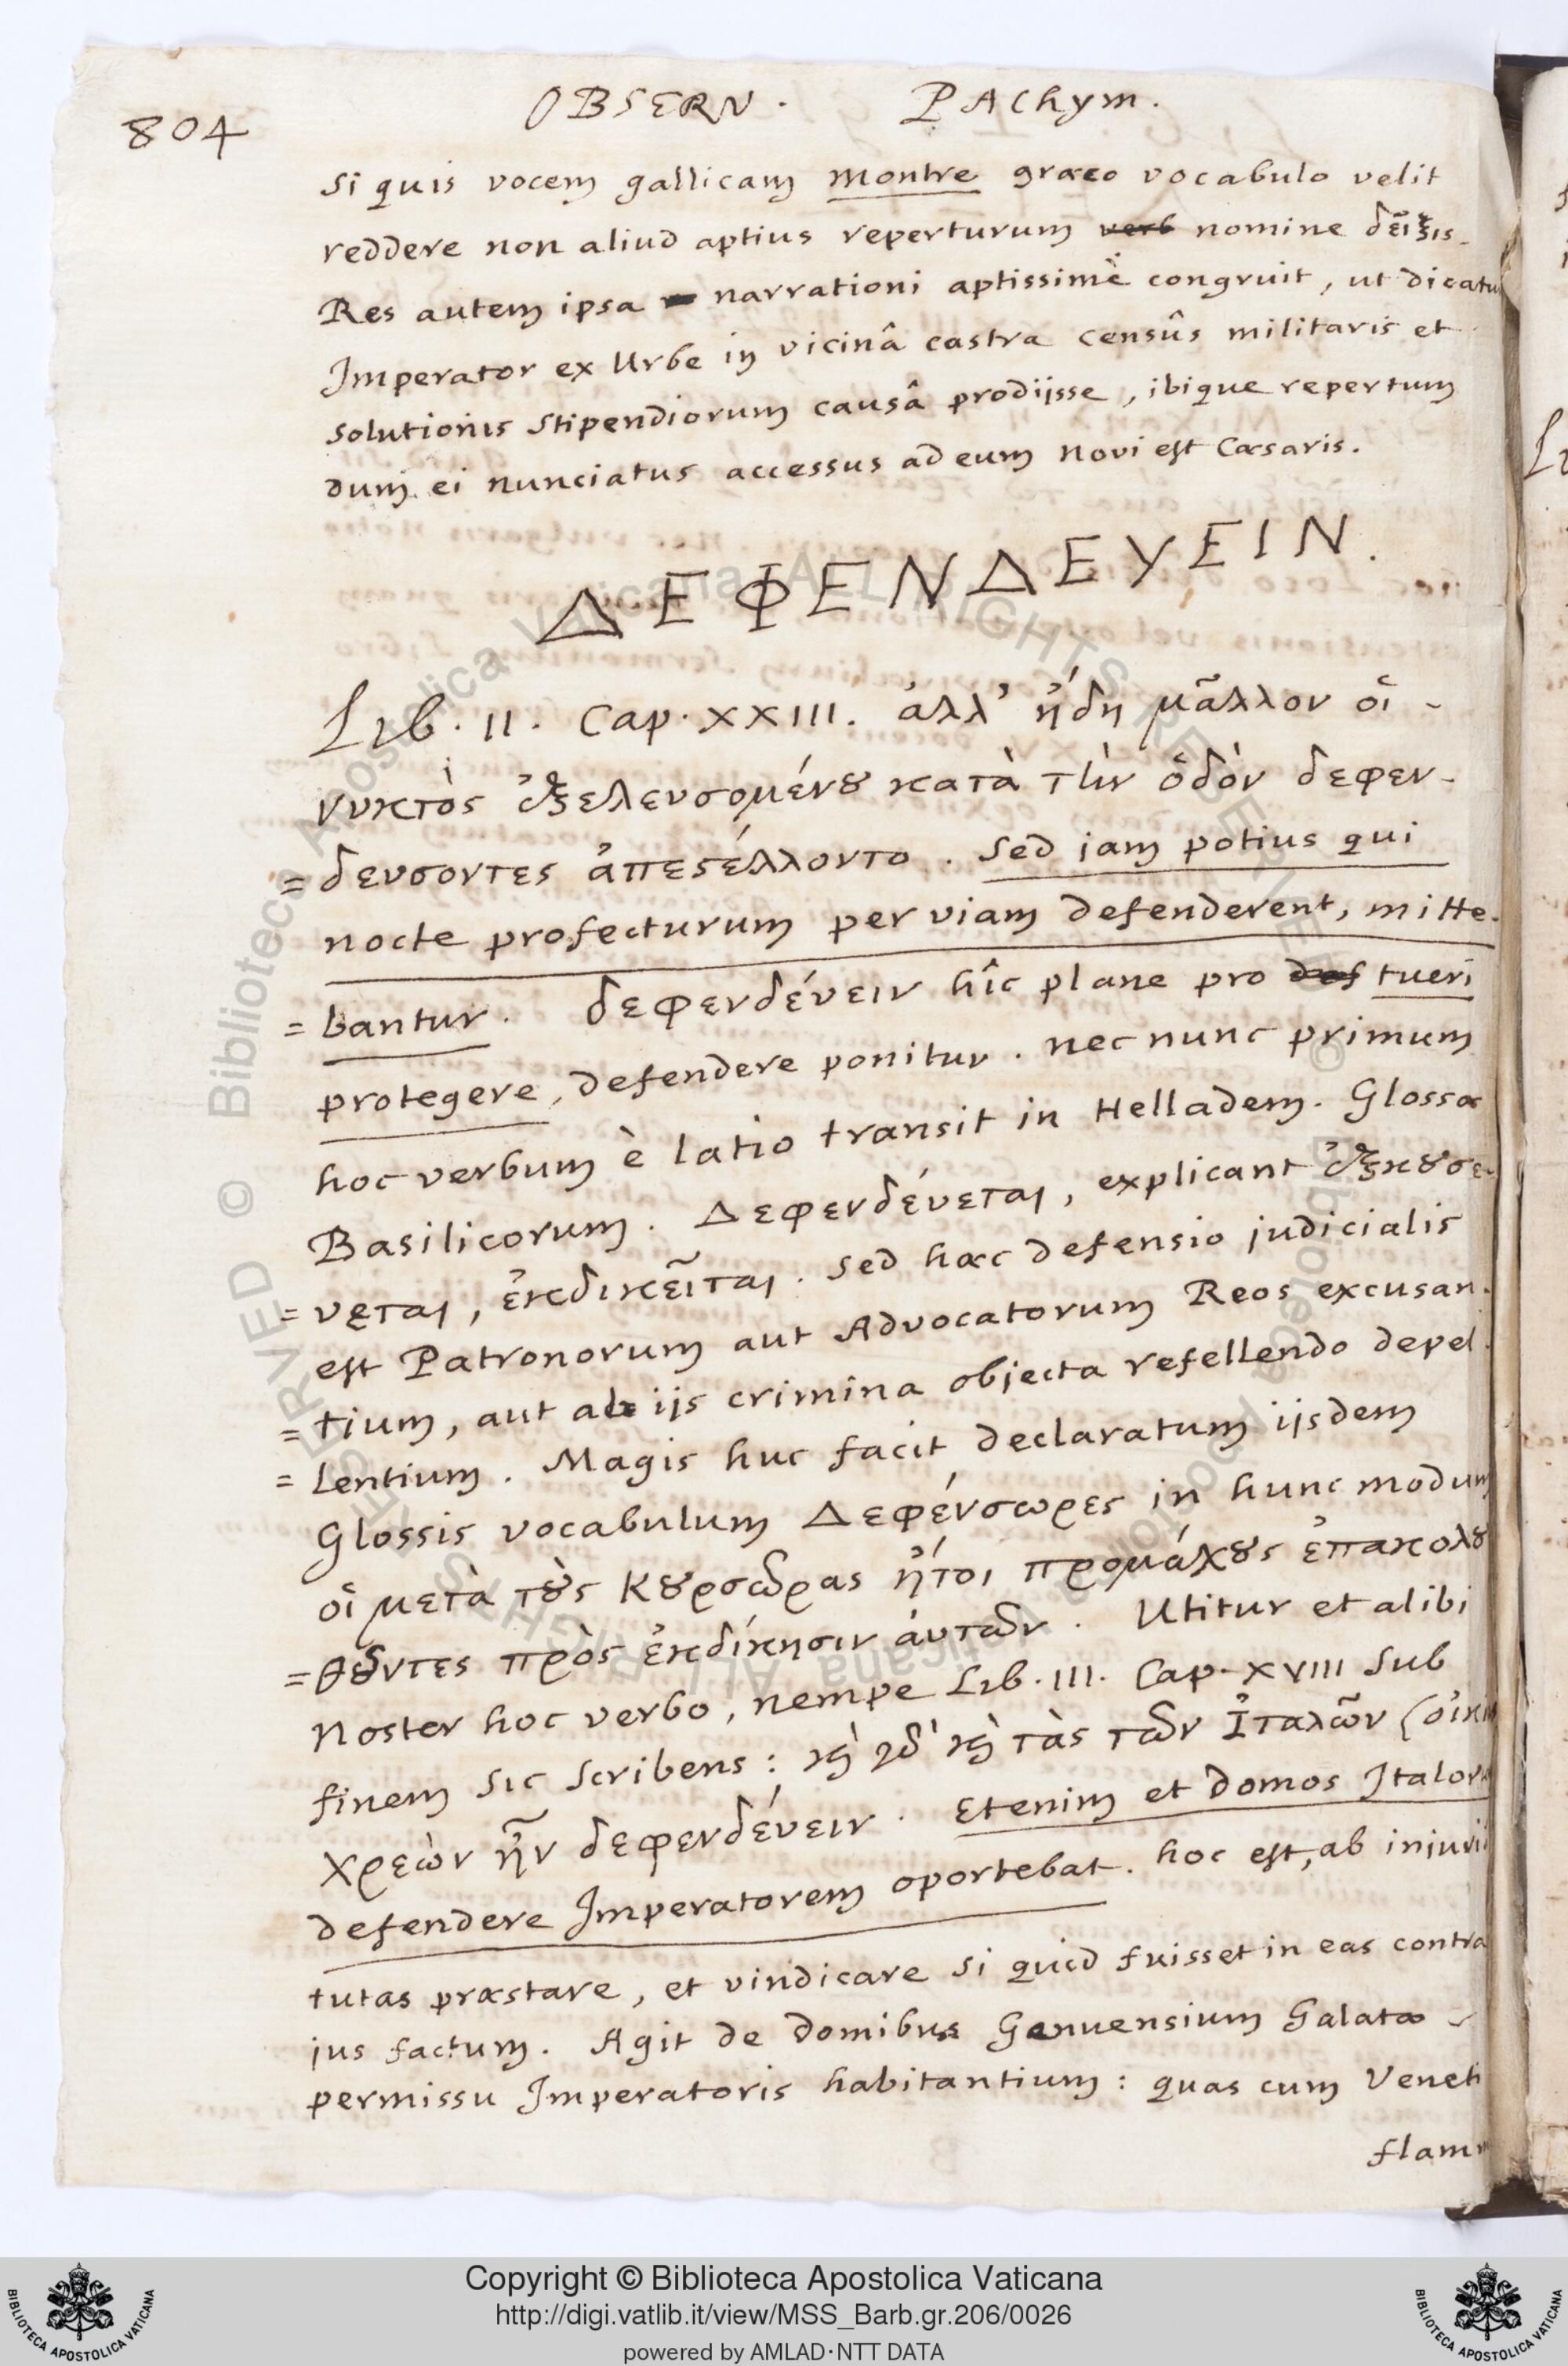 OBSERV. PAChym.
804
si quis vocem gallicam montre græco vocabulo velit
reddere non aliud aptius reperturum verb nomine δεῖξις.
Res autem ipsa narrationi aptissimè congruit, ut dicatu
Imperator ex Urbe in vicinâ castra censûs militaris et
solutionis stipendiorum causâ prodijsse, ibique repertum
dum ei nunciatus accessus ad eum novi est Cæsaris.
ΔΕΦΕΝΔΕΥΕΙΝ.
Lib. II. Cap. XXIII. ἀλλ' ἤδη μᾶλλον οἱ
νυκτὸς ἐξελευσομένȣ κατὰ τὴν ὁδὸν δεφεν-
=δευσοντες ἀπεϛέλλοντο. Sed iam potius qui
nocte profecturum per viam defenderent, mitte-
=bantur. δεφενδέυειν hîc plane pro def tueri
protegere, defendere ponitur. nec nunc primum
hoc verbum è latio transit in Helladem. Glossæ
Basilicorum. Δεφενδέυεται, explicant ἐξκȣσε-
=υεται, ἐκδικεῖται. sed hæc defensio judicialis
est Patronorum aut Advocatorum Reos excusan-
=tium, aut ab iis crimina objecta refellendo depel-
=lentium. Magis huc facit declaratum iisdem
Glossis vocabulum Δεφένσωρες in hunc modum
οἱ μετὰ τȣ̀ς Κȣρσῶρας ἤτοι προμάχȣς ἐπακολȣ
=θȣ͂ντες πρὸς ἐκδίκησιν ἀυτῶν. Utitur et alibi
Noster hoc verbo, nempe Lib. III. Cap. XVIII sub
finem sic scribens: ϗ̀ ϗ̀ τὰς τῶν Ἰταλῶν (οἰκι
χρεὼν ἦν δεφενδέυειν. Etenim et domos Italoru
defendere Imperatorem oportebat. hoc est, ab injurii
tutas præstare, et vindicare si quid fuisset in eas contra
jus factum. Agit de domibus Genuensium Galatæ
permissu Imperatoris habitantium: quas cum Veneti
flamm
Copyright © Biblioteca Apostolica Vaticana
http://digi.vatlib.it/view/MSS_Barb.gr.206/0026
powered by AMLAD·NTT DATA
BIBLIOTECA APOSTOLICA VATICANA
BIBLIOTECA APOSTOLICA VATICANA